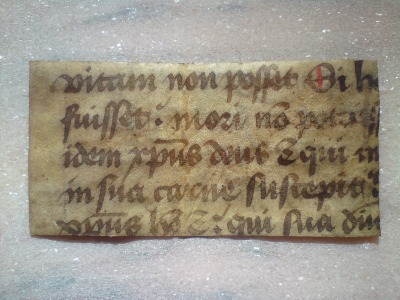 vitam non posset Si h
fuisset: mori nō pot
idem xp̄us deus & qui in
in sua carne suscepit:
xp̄us qui sua